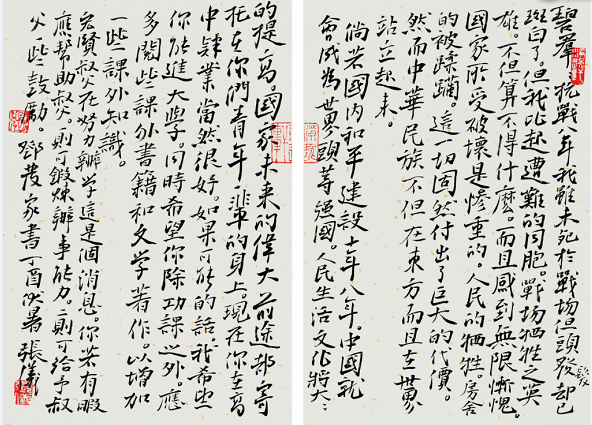 碧群 抗戰八年我雖未死於戰場但頭發却已
髮
斑白了。但我比起遭難的同胞。戰場犧牲之英
雄。不但算不得什麽。而且感到無限慚愧。
國家所受破壞是慘重的。人民的犧牲。房舍
的被蹂躪。這一切固然付出了巨大的代價。
然而中華民族不但在東方而且在世界
站立起來。
倘若國内和平建設十年八年。中國就
會成為世界頭等強國。人民生活文化將大大
的提高。國家未來的偉大前途都寄
托在你們青年一輩的身上。現在你在高
中肄業當然很好。如果可能的話。我希望
你能進大學。同時希望你除功課之外。應
多閱些課外書籍和文學著作。以增加
一些課外知識。
宏賢叔父在努力辦學這是個消息。你若有暇
應幫助叔父一則可鍛煉辦事能力。二則可給予叔
父一些鼓勵。鄧發家書丁酉伏暑張儀